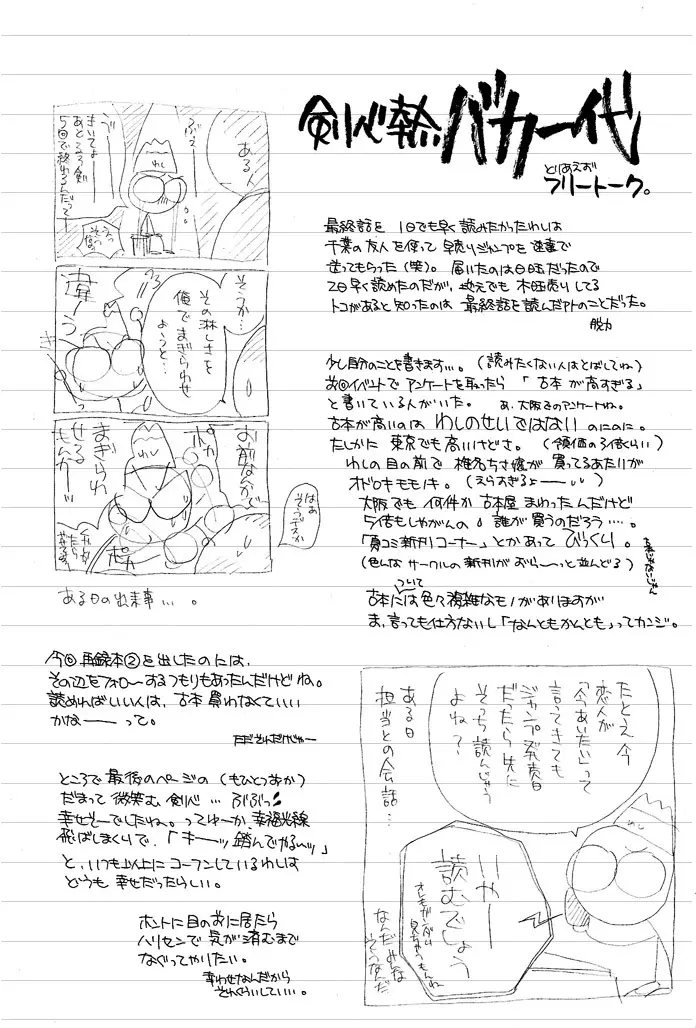 剣心莫迦バカ一代
とりあえず
フリートーク。
最終話を 1日でも早く読みたかったわしは
千葉の友人を使って早売りジャンプを速達で
送ってもらった(笑)。届いたのは日曜だったので
2日早く読めたのだが、地元でも木曜売りしてる
トコがあると知ったのは 最終話を読んだアトのことだった。
脱力
少し自分のことを書きます…。(読みたくない人はとばしてね)
前回イベントでアンケートを取ったら「古本が高すぎる」
と書いている人がいた。 あ、大阪でのアンケートね。
古本が高いのは わしのせいではない のにのに。
たしかに 東京でも高いけどさ。(領価の3倍くらい)
わしの目の前で 椎名ちさ嬢が 買ってるあたりが
オドロキモモノキ。(えらすぎるよーー)
大阪でも 何件か 古本屋まわったんだけど
5倍もしやがんの。誰が買うのだろう…。
「同コミ新刊コーナー」とかあって びっくり。
(色んな サークルの新刊が おら〜〜っと並んどる)
古本については色々複雑なモノがありますが
ま、言っても仕方ないし「なんともかんとも」ってカンジ。
ある人
きいてよー
あと るろ剣
5回で終わるんだってー
わし
そうか…
その淋しさを
俺でまぎらわせ
ようと…
違ーう
お前なんかで
まぎらわ
せる
もんかーッ
ポカ
ポカ
はあ
そうデスか
ある日の出来事…。
今回 再録本②を出したのには、
その辺をフォローするつもりもあったんだけどね。
読めればいい人は、古本買わなくていい
かなーー って。
ところで最後のページの(もひとつおか)
だまって微笑む 剣心…ぶぶっ
幸せそーでしたね。ってゆーか、幸福光線
飛ばしまくりで、「キーッ 踏んでやるーッ」
と、いつも以上にコーフンしているわしは
どうも 幸せだったらしい。
ホントに目の前に居たら
ハリセンで気が済むまで
なぐってやりたい。
幸わせなんだから
それくらいしていい…。
たとえ今
恋人が
「今あいたい」って
言ってきても
ジャンプ発売日
だったら 先に
そっち読んじゃう
よね?
ある日
担当との会話…
いやー
読むでしょう
なんだみんな
そうなんだ